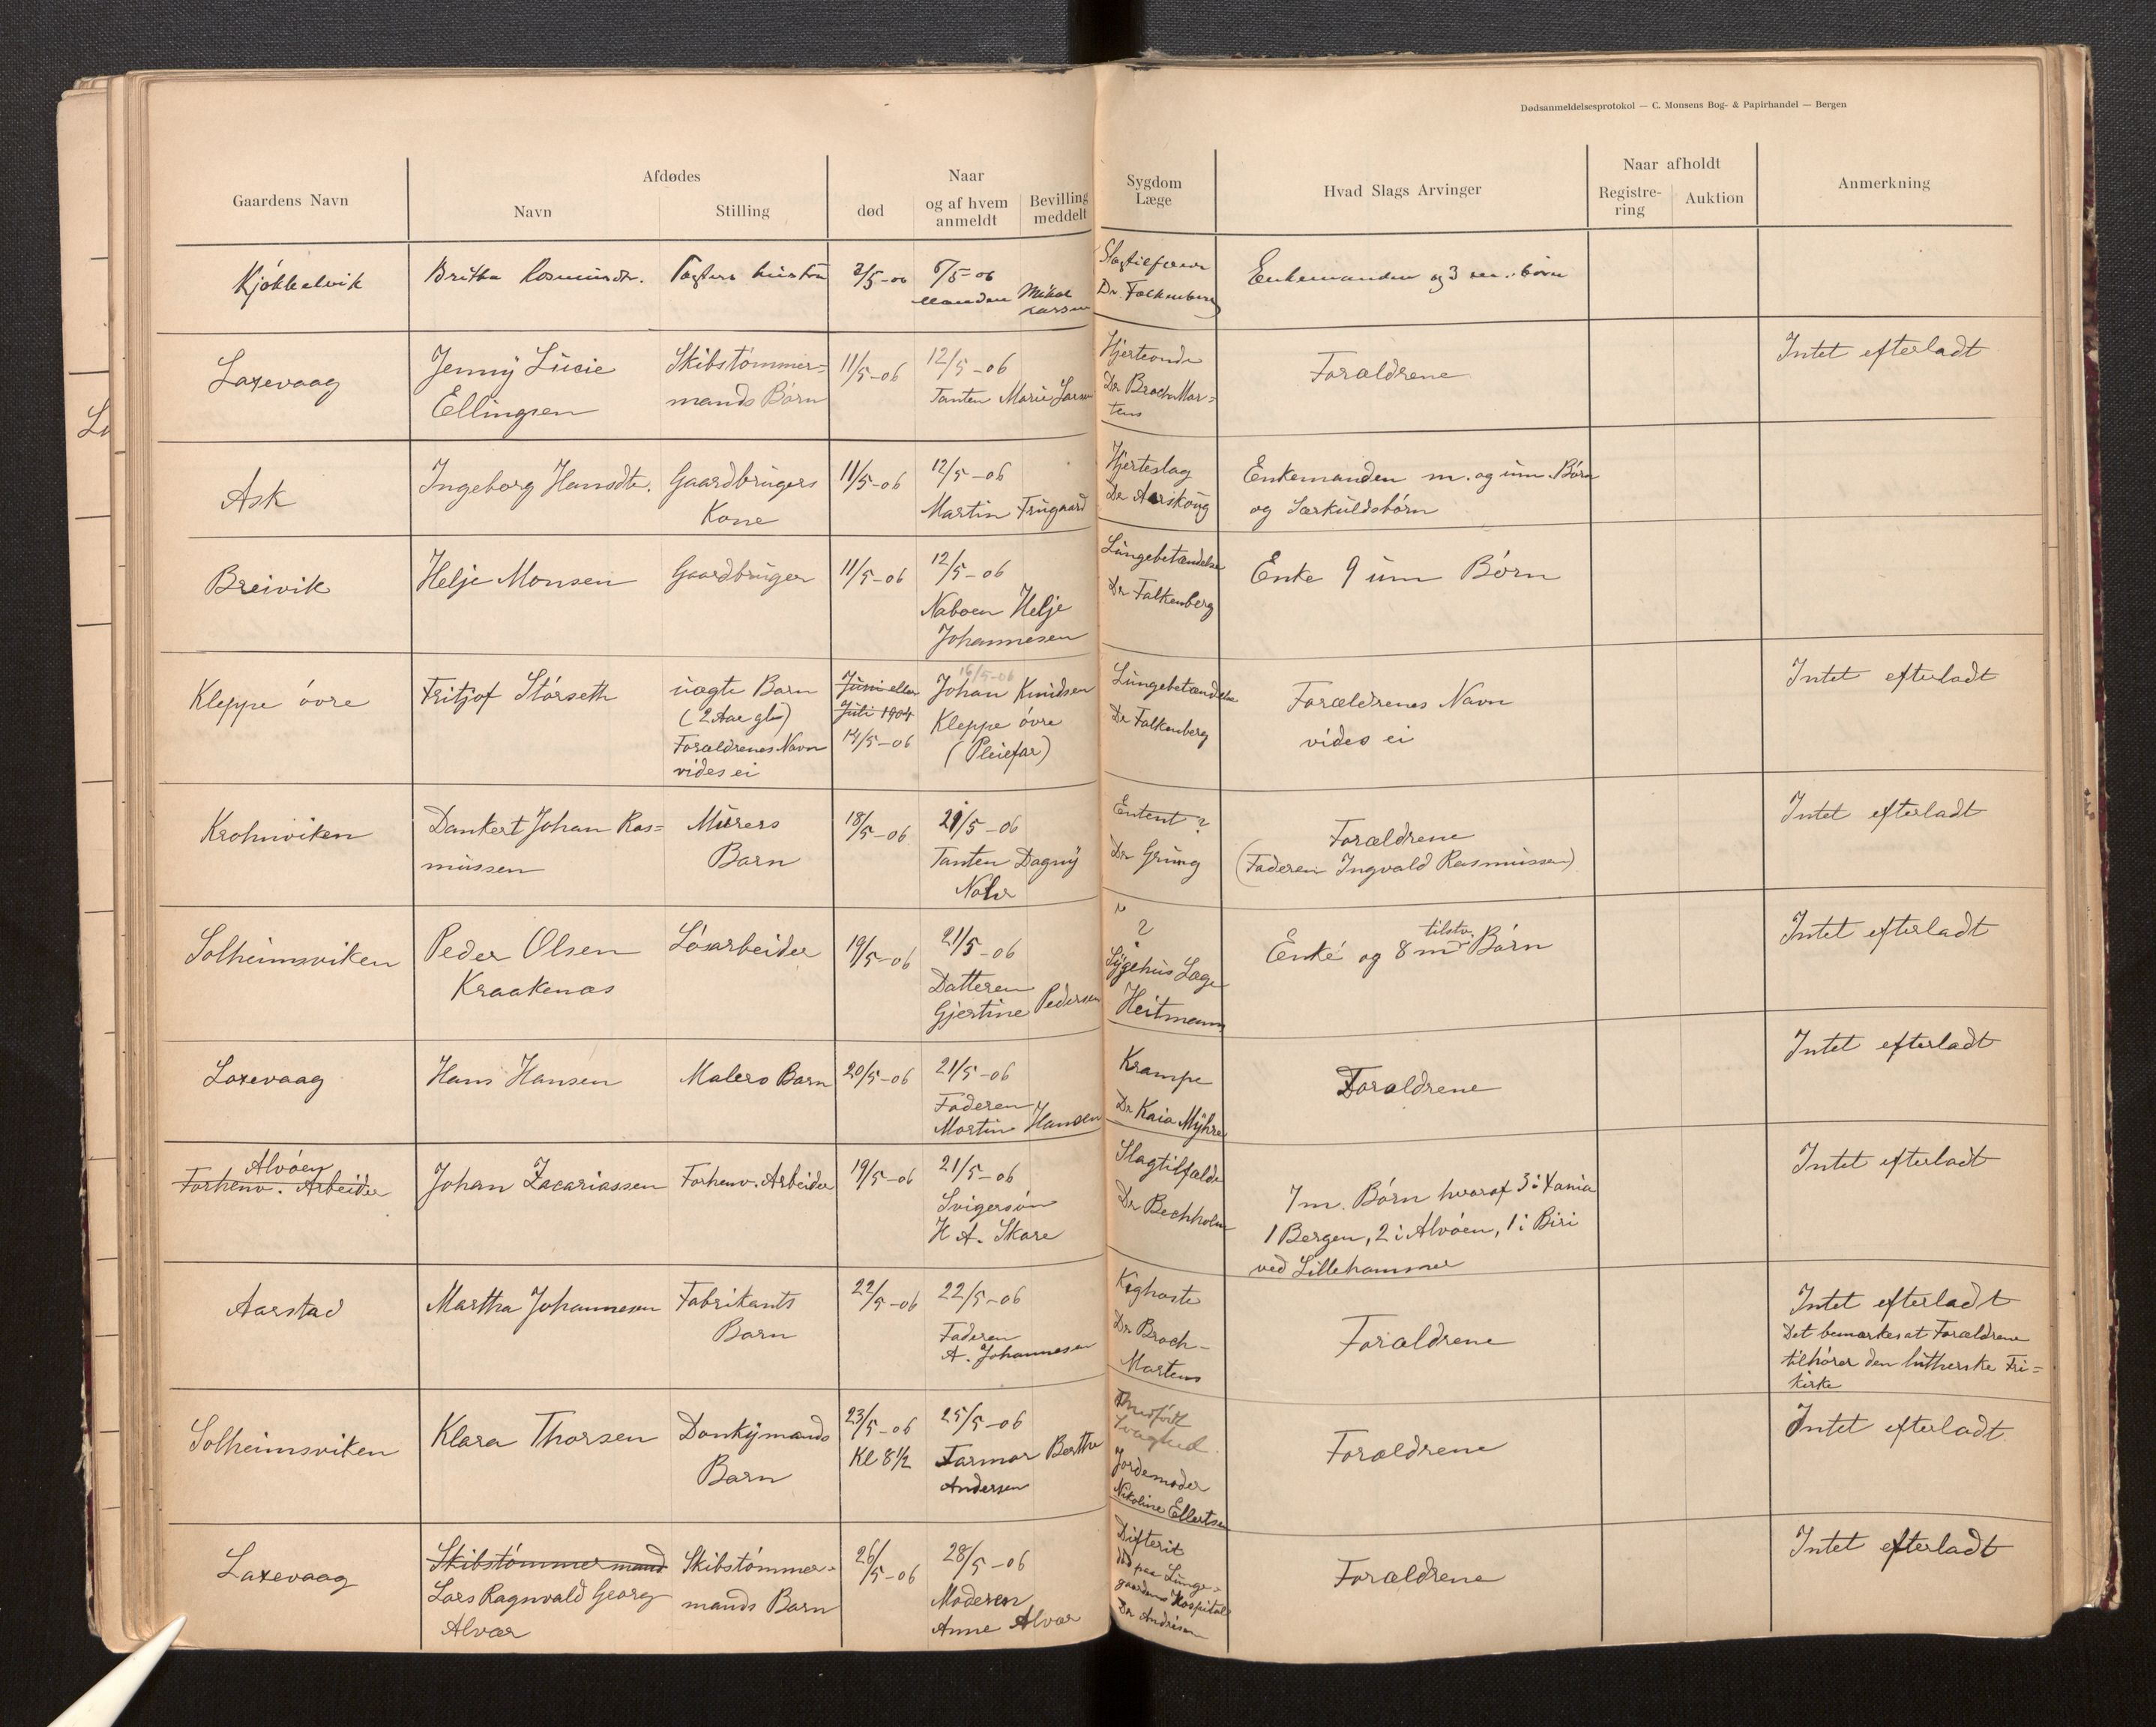 Dødsanmeldelsesprotokol — C. Monsens Bog- & Papirhandel — Bergen
Gaardens Navn
Afdødes
Navn
Stilling
død
Naar
og af hvem
anmeldt
Bevilling
meddelt
Sygdom
Læge
Hvad Slags Arvinger
Naar afholdt
Registre-
ring
Auktion
Anmerkning
Kjökkelvik
Britha Rasmusdr.
7/5-06
8/5-06
Manden Mikal
Larsen
Slagtilfælde
Dr. Falkenberg
Enkemanden og 3 börn
Laxevaag
Jenny Lucie
Ellingsen
Skibstömmer=
mands Börn
11/5-06
12/5-06
Tanten Marie Larsen
Hjerteonde
Dr Broch Mar=
tens
Forældrene
Intet efterladt
Ask
Ingeborg Hansdtr.
Gaardbrugers
Kone
11/5-06
12/5-06
Martin Frugaard
Hjerteslag
Dr Aarskoug
Enkemanden m. og um. Börn
og Særkuldsbörn
Breivik
Helje Monsen
Gaardbruger
11/5-06
12/5-06
Naboen Helje
Johannesen
Lungebetændelse
Dr Falkenberg
Enke 9 um Börn
Kleppe övre
Fritjof Störseth
uægte Barn
(2 Aar gl)
Forældrenes Navn
vides ei
Juni eller
Juli 1904
14/5-06
16/5-06
Johan Knudsen
Kleppe övre
(Pleiefar)
Lungebetændelse
Dr Falkenberg
Forældrenes Navn
vides ei
Intet efterladt
Krohnviken
Dankert Johan Ras=
mussen
Murers
Barn
18/5-06
21/5-06
Tanten Dagny
Entent ?
Dr Grung
Forældrene
(Faderen Ingvald Rasmussen)
Intet efterladt
Solheimsviken
Peder Olsen
Kraakenæs
Lösarbeider
19/5-06
21/5-06
Datteren
Gjertine Pedersen
?
Sygehus Læge
Heitmann
Enke og 8 m tilstv. Börn
Intet efterladt
Laxevaag
Hans Hansen
Malers Barn
20/5-06
21/5-06
Faderen
Martin Hansen
Krampe
Dr Kaia Myhre
Forældrene
Intet efterladt
Alvöen
Forhenv. Arbeider
Johan Zacariassen
Forhenv. Arbeider
19/5-06
21/5-06
Svigersön
H A. Skare
Slagtilfælde
Dr Bechholm
7 m. Börn hvoraf 3 i Xania
1 Bergen, 2 i Alvöen, 1 i Biri
ved Lillehammer
Intet efterladt
Aarstad
Martha Johannesen
Fabrikants
Barn
22/5-06
22/5-06
Faderen
A. Johannesen
Kighoste
Dr Broch-
Martens
Forældrene
Intet efterladt
Det bemærkes at Forældrene
tilhører den lutherske Fri=
kirke
Solheimsviken
Klara Thorsen
Donkymands
Barn
23/5-06
Kl 8½
25/5-06
Farmor Bertha
Andersen
Svaghed.
Jordemoder
Nikoline Ellertsen
Forældrene
Intet efterladt
Laxevaag
Skibstömmermand
Lars Ragnvald Georg
Alvær
Skibstömmer=
mands Barn
26/5-06
28/5-06
Moderen
Anne Alvær
Difterit
död paa Lunge=
gaardens Hospital
Dr Andresen
Forældrene
Intet efterladt